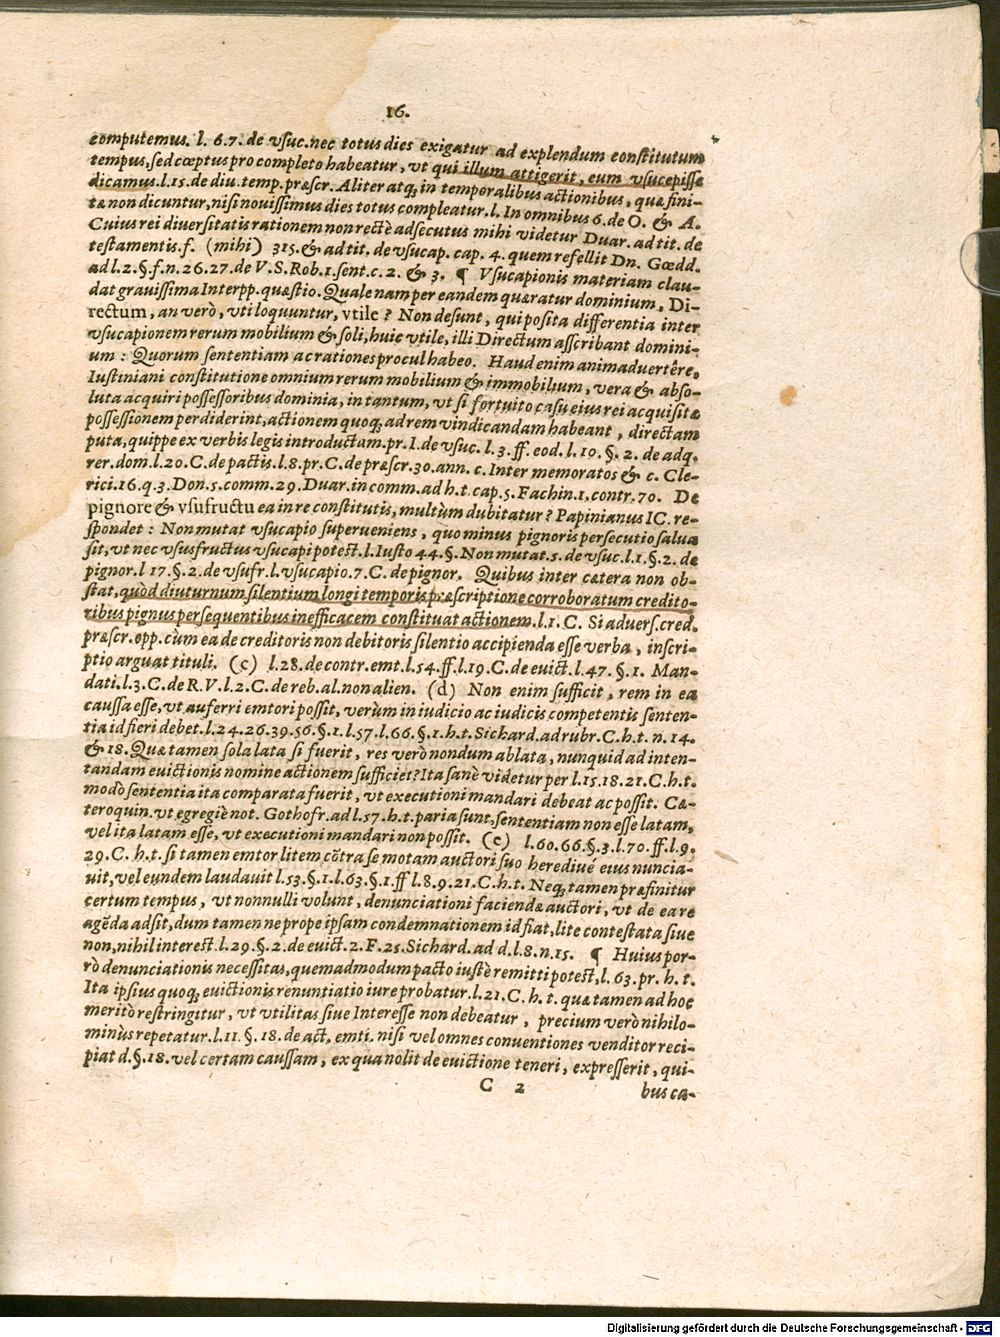 16.
computemus. l. 6.7. de vsuc. nec totus dies exigatur ad explendum constitutum
tempus, sed cœptus pro completo habeatur, vt qui illum attigerit, eum vsucepisse
dicamus. l.15. de diu. temp. præscr. Aliter atq; in temporalibus actionibus, quæ fini-
tæ non dicuntur, nisi nouissimus dies totus compleatur. l. In omnibus 6. de O. & A.
Cuius rei diuersitatis rationem non rectè adsecutus mihi videtur Duar. ad tit. de
testamentis. f. (mihi) 315. & ad tit. de vsucap. cap. 4. quem refellit Dn. Gœdd.
ad l.2. §. f. n. 26.27. de V. S. Rob. 1. sent. c. 2. & 3. ¶ Vsucapionis materiam clau-
dat grauissima Interpp. quæstio. Quale nam per eandem quæratur dominium, Di-
rectum, an verò, vti loquuntur, vtile? Non desunt, qui posita differentia inter
vsucapionem rerum mobilium & soli, huic vtile, illi Directum asscribant domini-
um: Quorum sententiam ac rationes procul habeo. Haud enim animaduertêre,
Iustiniani constitutione omnium rerum mobilium & immobilium, vera & abso-
luta acquiri possessoribus dominia, in tantum, vt si fortuito casu eius rei acquisitæ
possessionem perdiderint, actionem quoq; ad rem vindicandam habeant, directam
puta, quippe ex verbis legis introductam. pr. I. de vsuc. l. 3. ff. eod. l. 10. §. 2. de adq.
rer. dom. l.20. C. de pactis. l.8. pr. C. de præscr. 30. ann. c. Inter memoratos & c. Cle-
rici. 16. q.3. Don. 5. comm. 29. Duar. in comm. ad h.t. cap. 5. Fachin. 1. contr. 70. De
pignore & vsufructu ea in re constitutis, multùm dubitatur? Papinianus IC. re-
spondet: Non mutat vsucapio superueniens, quo minus pignoris persecutio salua
sit, vt nec vsusfructus vsucapi potest. l. Iusto 44. §. Non mutat. 5. de vsuc. l.1. §.2. de
pignor. l 17. §. 2. de vsufr. l. vsucapio. 7. C. de pignor. Quibus inter cætera non ob-
stat, quòd diuturnum silentium longi temporis præscriptione corroboratum credito-
ribus pignus persequentibus inefficacem constituat actionem. l.1. C. Si aduers. cred.
præscr. opp. cùm ea de creditoris non debitoris silentio accipienda esse verba, inscri-
ptio arguat tituli. (c) l.28. de contr. emt. l.54. ff. l.19. C. de euict. l.47. §. 1. Man-
dati. l.3. C. de R. V. l.2. C. de reb. al. non alien. (d) Non enim sufficit, rem in ea
caussa esse, vt auferri emtori possit, verùm in iudicio ac iudicis competentis senten-
tia id fieri debet. l.24.26.39.56. §.1. l.57. l.66. §.1. h.t. Sichard. ad rubr. C. h.t. n. 14.
& 18. Quæ tamen sola lata si fuerit, res verò nondum ablata, nunquid ad inten-
tandam euictionis nomine actionem sufficiet? Ita sanè videtur per l.15.18.21. C. h.t.
modò sententia ita comparata fuerit, vt executioni mandari debeat ac possit. Cæ-
teroquin. vt egregiè not. Gothofr. ad l.57. h.t. paria sunt, sententiam non esse latam,
vel ita latam esse, vt executioni mandari non possit. (e) l.60.66. §.3. l.70. ff. l.9.
29. C. h.t. si tamen emtor litem cōtra se motam auctori suo herediué eius nuncia-
uit, vel eundem laudauit l.53. §.1. l.63. §.1. ff l.8.9.21. C. h.t. Neq; tamen præfinitur
certum tempus, vt nonnulli volunt, denunciationi faciendæ auctori, vt de ea re
agēda adsit, dum tamen ne prope ipsam condemnationem id fiat, lite contestata siue
non, nihil interest. l.29. §.2. de euict. 2. F. 25. Sichard. ad d. l.8. n.15. ¶ Huius por-
rò denunciationis necessitas, quemadmodum pacto iustè remitti potest, l. 63. pr. h. t.
Ita ipsius quoq; euictionis renuntiatio iure probatur. l.21. C. h. t. quæ tamen ad hoc
meritò restringitur, vt vtilitas siue Interesse non debeatur, precium verò nihilo-
minùs repetatur. l.11. §. 18. de act. emti. nisi vel omnes conuentiones venditor reci-
piat d. §. 18. vel certam caussam, ex qua nolit de euictione teneri, expresserit, qui-
C 2 bus ca-
Digitalisierung gefördert durch die Deutsche Forschungsgemeinschaft - DFG